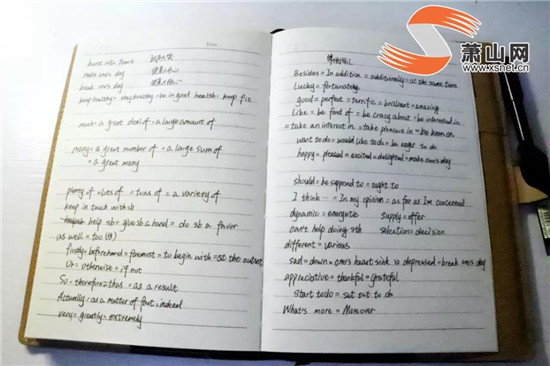 萧山网
www.xsnet.cn
Date
burst into tears
make one's day
break one's day
keep healthy = stay healthy = be in good health = keep fit
much = a great deal of = a large amount of
many = a great number of = a large sum of
= a great many
plenty of = lots of = tons of = a variety of
keep in touch with sb
help sb = give sb a hand = do sb a favor
as well = too
firstly = beforehand = foremost = to begin with = at the outset
Or = otherwise = if not
So = therefore = thus = as a result
Actually = as a matter of fact = indeed
very = greatly = extremely
Besides = In addition = additionally = at the same time
Lucky = fortunately
good = perfect = terrific = brilliant = amazing
like = be fond of = be crazy about = be interested in
= take an interest in = take pleasure in = be keen on
want to do = would like to do = be eager to do
happy = pleased = excited = delighted = make one's day
should = be supposed to = ought to
I think = In my opinion = as far as I'm concerned
dynamic = energetic supply = offer
can't help doing sth selection = decision
different = various
sad = down = one's heart sink = depressed = break one's day
appreciative = thankful = grateful
start to do = set out to do
What's more = Moreover